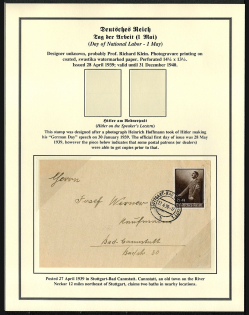 Deutsches Reich
Tag der Arbeit (1 Mai)
(Day of National Labor - 1 May)
Designer unknown, probably Prof. Richard Klein. Photogravure printing on
coated, swastika watermarked paper. Perforated 14¼ x 13¾.
Issued 28 April 1939; valid until 31 December 1940.
Hitler am Rednerpult
(Hitler on the Speaker's Lectern)
This stamp was designed after a photograph Heinrich Hoffmann took of Hitler making
his "German Day" speech on 30 January 1939. The official first day of issue was 28 May
1939, however the piece below indicates that some postal patrons (or dealers)
were able to get copies prior to that.
Herrn
Josef Werner
Kaufmann
Bad Cannstatt
Posted 27 April 1939 in Stuttgart-Bad Cannstatt. Cannstatt, an old town on the River
Neckar 12 miles northeast of Stuttgart, claims two baths in nearby locations.